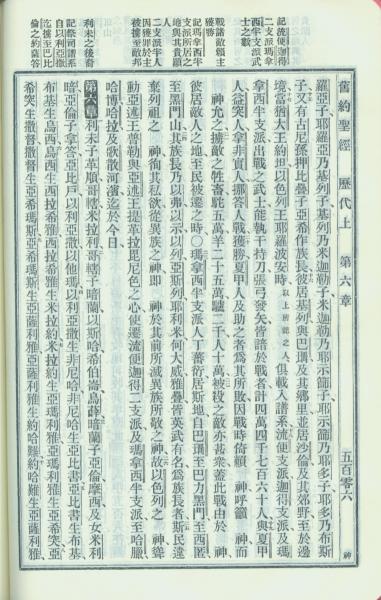 舊約聖經 歷代上 第六章 五百零六 神
記流便迦得
二支派瑪拿
西半支派武
士之數
戰諸敵賴主
獲勝
記瑪拿西半
支派所居之
地與其貴顯
二支派半人
因獲罪於主
被擄至敵邦
利未之後裔
記祭司譜系
自以利亞撒
迄擄至巴比
倫之約薩答
羅亞子耶羅亞乃基列子基列乃米迦勒子米迦勒乃耶示篩子耶示篩乃耶多子耶多乃布斯
子又有古尼孫押比疊子亞希作族長彼居基列與巴珊及其鄉里並居沙倫及其郊野至於邊
境當猶大王約坦以色列王耶羅波安時以上所記之人俱載入譜系流便支派迦得支派及瑪
拿西半支派出戰之武士能執干持刀張弓發矢皆諳於戰者計四萬四千七百六十人與夏甲
人益突人拿非實人挪答人戰獲勝夏甲人及助之者為其所敗因戰時倚賴 神呼籲 神而
神允之擄敵之牲畜駝五萬羊二十五萬驢二千人十萬被殺之敵亦甚衆蓋此戰由於 神
彼居敵人之地至民被遷之時○瑪拿西半支派人丁蕃衍居斯地自巴珊至巴力黑門至西匿
至黑門山其族長乃以弗以示以列亞斯列耶利米何大威雅疊皆英武有名為族長者斯民違
棄列祖之 神徇其私欲從異族之神即 神於其前所滅異族所敬之神故以色列之 神聳
動亞述王普勒與亞述王提革拉毘尼色之心使遷流便迦得二支派及瑪拿西半支派至哈臘
哈博哈拉及歌散河濱迄於今日
第六章 利未子革順哥轄米拉利哥轄子暗蘭以斯哈希伯崙烏薛暗蘭子亞倫摩西及女米利
暗亞倫子拿答亞比戶以利亞撒以他瑪以利亞撒生非尼哈非尼哈生亞比書亞比書生布基
布基生烏西烏西生西拉希雅西拉希雅生米拉約米拉約生亞瑪利雅亞瑪利雅生亞希突亞
希突生撒督撒督生亞希瑪斯亞希瑪斯生亞薩利雅亞薩利雅生約哈難約哈難生亞薩利雅